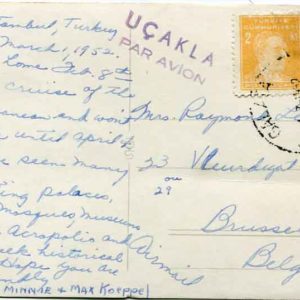 tambul, Turkey
March 1, 1952.
Lome Feb. 8th
cruise of the
ranean and won't
until april
e seen many
ing palaces,
mosques, museums
Acropolis and
eek historical
Hope you are
MINNAE & MAX KOEPPEL
UÇAKLA
PAR AVION
TÜRKİYE
CUMHURİYETİ
2
Mrs. Raymond
23
ou
29
Brusse
Belg
Airmail